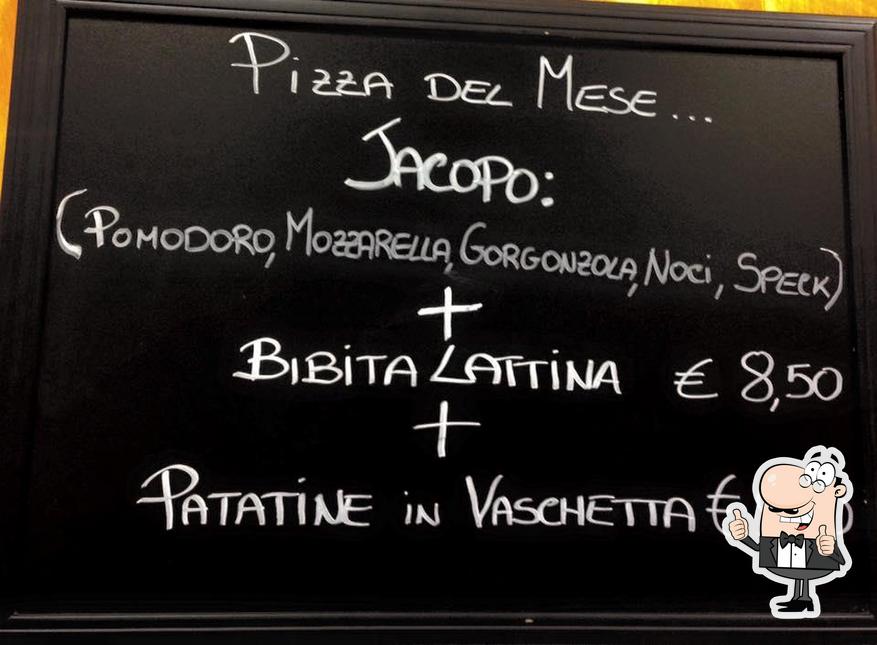 Pizza del Mese...
Jacopo:
(Pomodoro, Mozzarella, Gorgonzola, Noci, Speck)
+
Bibita Lattina € 8,50
+
Patatine in Vaschetta €